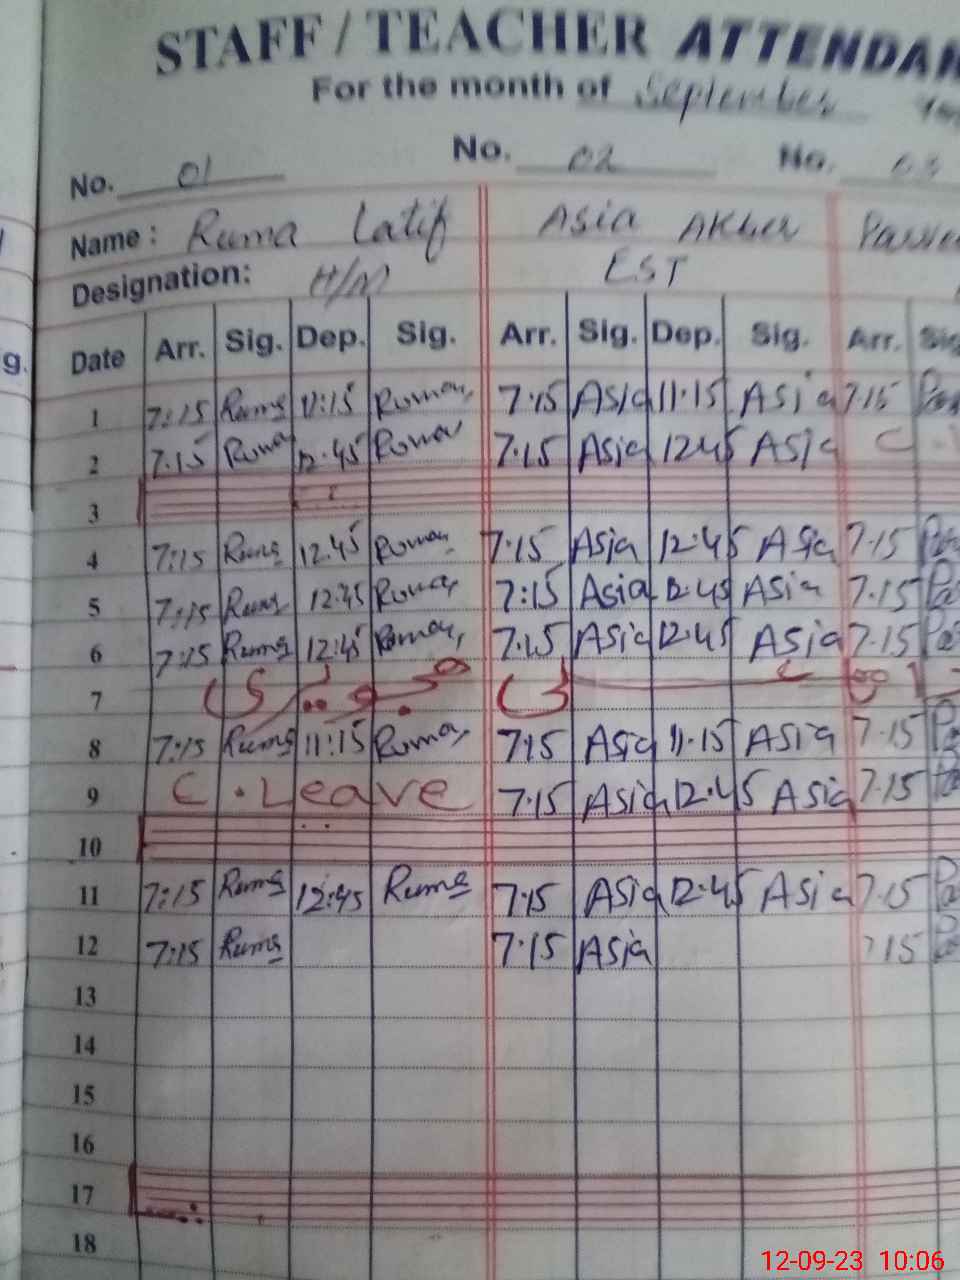 STAFF / TEACHER ATTENDAN
For the month of September
No. 01 No. 02 No. 03
Name: Ruma Latif Asia Akhter
Designation: H/M EST
g. Date Arr. Sig. Dep. Sig. Arr. Sig. Dep. Sig. Arr. Sig
1 7:15 Ruma 11:15 Ruma 7:15 Asia 11:15 Asia 7:15
2 7:15 Ruma 12:45 Ruma 7:15 Asia 12:45 Asia C
3
4 7:15 Ruma 12:45 Ruma 7:15 Asia 12:45 Asia 7:15
5 7:15 Ruma 12:45 Ruma 7:15 Asia 12:45 Asia 7:15
6 7:15 Ruma 12:45 Ruma 7:15 Asia 12:45 Asia 7:15
7
8 7:15 Ruma 11:15 Ruma 7:15 Asia 11:15 Asia 7:15
9 C. Leave 7:15 Asia 12:45 Asia 7:15
10
11 7:15 Ruma 12:45 Ruma 7:15 Asia 12:45 Asia 7:15
12 7:15 Ruma 7:15 Asia 7:15
13
14
15
16
17
18
12-09-23 10:06